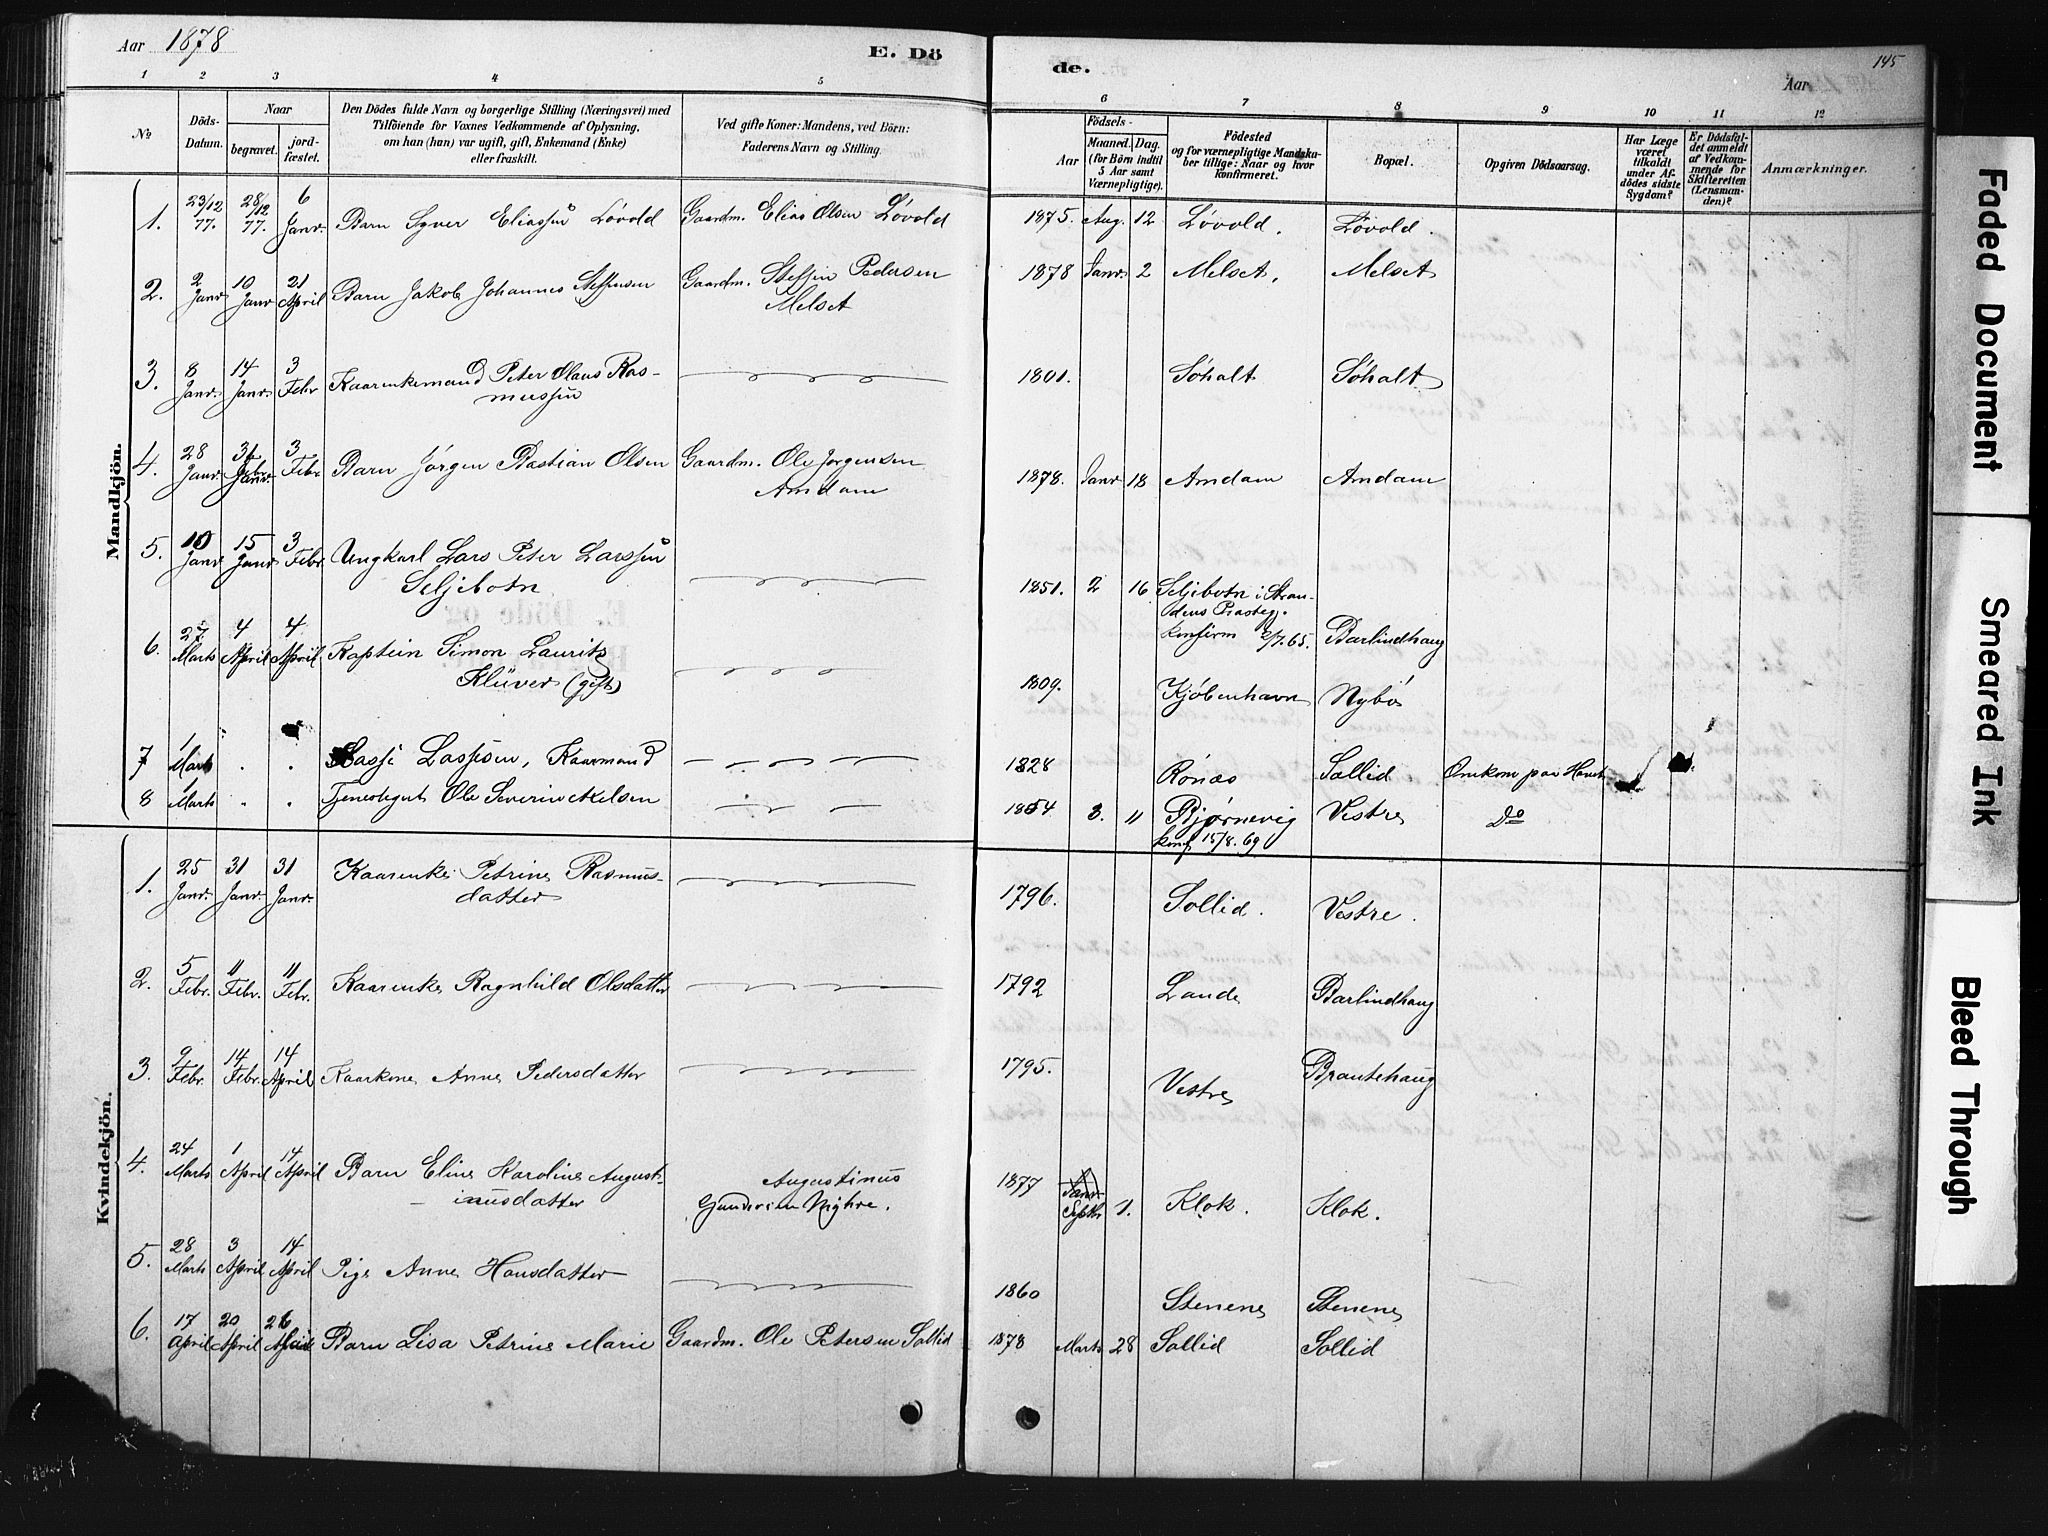 Aar 1878
E. Dö
de.
145
Aar
1 2 3 4 5 6 7 8 9 10 11 12
No
Döds-Datum.
Naar
begravet.
jordfæstet.
Den Dödes fulde Navn og borgerlige Stilling (Næringsvei) med
Tilföiende for Voxnes Vedkommende af Oplysning,
om han (hun) var ugift, gift, Enkemand (Enke)
eller fraskilt.
Ved gifte Koner: Mandens, ved Börn:
Faderens Navn og Stilling.
Födsels-
Aar
Maaned. Dag.
(for Börn indtil
5 Aar samt
Værnepligtige).
Födested
og for værnepligtige Mandska-
ber tillige: Naar og hvor
konfirmeret.
Bopæl.
Opgiven Dödsaarsag.
Har Læge
været
tilkaldt
under Af-
dödes sidste
Sygdom?
Er Dödsfal-
det anmeldt
af Vedkom-
mende for
Skifteretten
(Lensman-
den)?
Anmærkninger.
Mandkjön.
1. 23/12 77. 28/12 77. 6 Janr. Barn Syver Eliassen Løvold Gaardm. Elias Olsen Løvold 1875. Aug. 12 Løvold. Løvold.
2. 2 Janr 10 Janr 21 April Barn Jakob Johannes Steffensen Gaardm. Steffen Pedersen
Melset 1878 Janr. 2 Melset. Melset
3. 8 Janr. 14 Janr. 3 Febr Kaarenkemand Peter Olaus Ras-
mussen 1801. Søholt Søholt
4. 28 Janr. 31 Janr. 3 Febr. Barn Jørgen Bastian Olsen Gaardm. Ole Jørgensen
Amdam 1878. Janr 18 Amdam Amdam
5. 10 Janr 15 Janr 3 Febr. Ungkarl Lars Peter Larssen
Seljebotn 1851. 2 16 Seljebotn i Stran-
dens Præsteg.
konfirm 2/7.65. Barlindhaug
6. 27 Marts 4 April 4 April Kaptein Simon Lauritz
Klüver (gift) 1809. Kjøbenhavn Nybø
7 1 Marts . . Lasse Lassesen, Kaarmand 1828 Rønæs Sollid Omkom paa Havet
8 Marts " . Tjenestegut Ole Severin Axelsen 1854 3. 11 Bjørnevig
konf 15/8.69 Vestre Do
Kvindekjön.
1. 25 Janr. 31 Janr. 31 Janr. Kaarenke Petrine Rasmus-
datter 1796. Sollid. Vestre.
2. 5 Febr. 11 Febr. 11 Febr. Kaarenke Ragnhild Olsdatter 1792 Lande Barlindhaug
3. 9 Febr. 14 Febr. 14 April Kaarkone Anne Pedersdatter 1795. Vestre Brautehaug
4. 24 Marts 1 April 14 April Barn Eline Karoline August-
inusdatter Augustinus
1877 Janr. Septbr 1. Klok. Klok.
5. 28 Marts 3 April 14 April Pige Anne Hansdatter 1860 Stenene Stenene
6. 17 April 20 April 26 Barn Lisa Petrine Marie Gaardm. Ole Petersen Sollid 1878 Marts 28 Sollid Sollid
Faded Document
Smeared Ink
Bleed Through